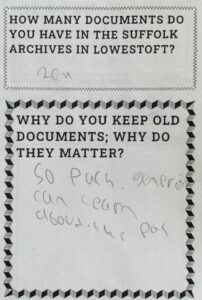 HOW MANY DOCUMENTS DO
YOU HAVE IN THE SUFFOLK
ARCHIVES IN LOWESTOFT?
WHY DO YOU KEEP OLD
DOCUMENTS; WHY DO
THEY MATTER?
So
can learn
about